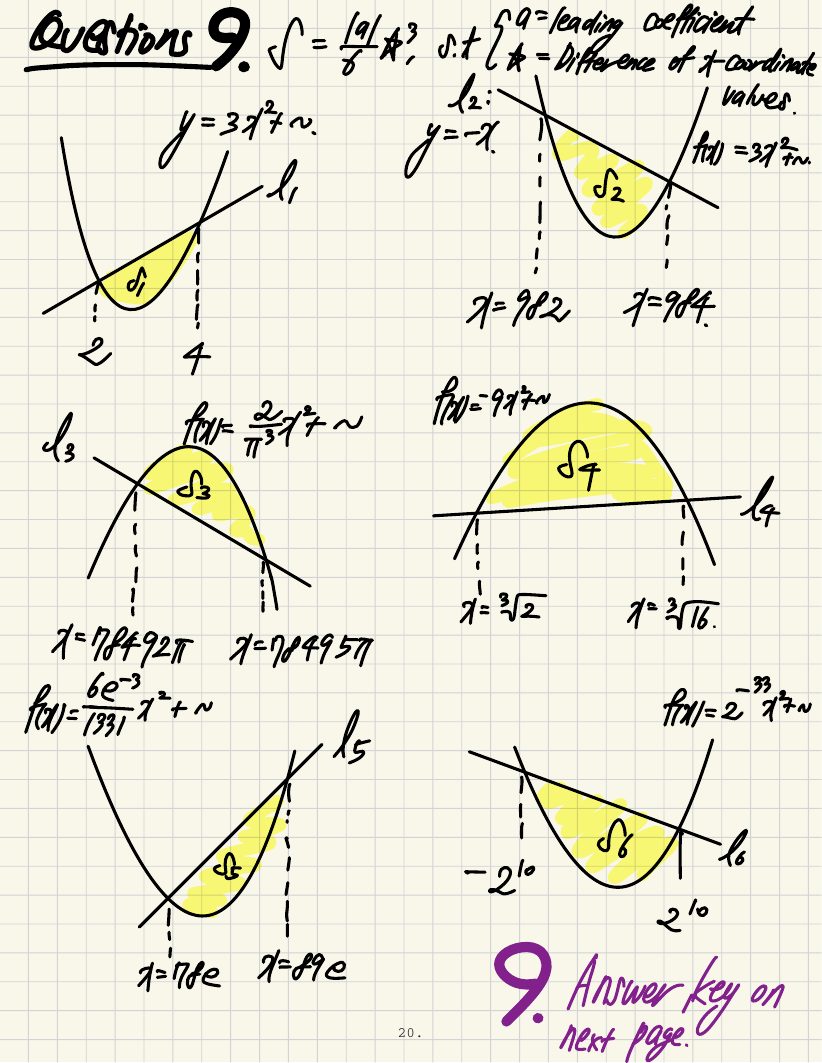 Questions 9. S = |a|/6 ☆³, s.t { a = leading coefficient
☆ = Difference of x-coordinate
values.
y = 3x²+~.
l₁
S₁
2 4
l₂:
y = -x.
f(x) = 3x²+~.
S₂
x = 982 x = 984.
l₃
f(x) = 2/π³ x²+ ~
S₃
x = 78492π x = 78495π
f(x) = -9x²+~
S₄
l₄
x = ³√2 x = ³√16.
f(x) = 6e⁻³/1331 x² + ~
l₅
S₅
x = 78e x = 89e
f(x) = 2⁻³³x²+~
S₆
l₆
-2¹⁰
2¹⁰
9. Answer key on
next page.
20.